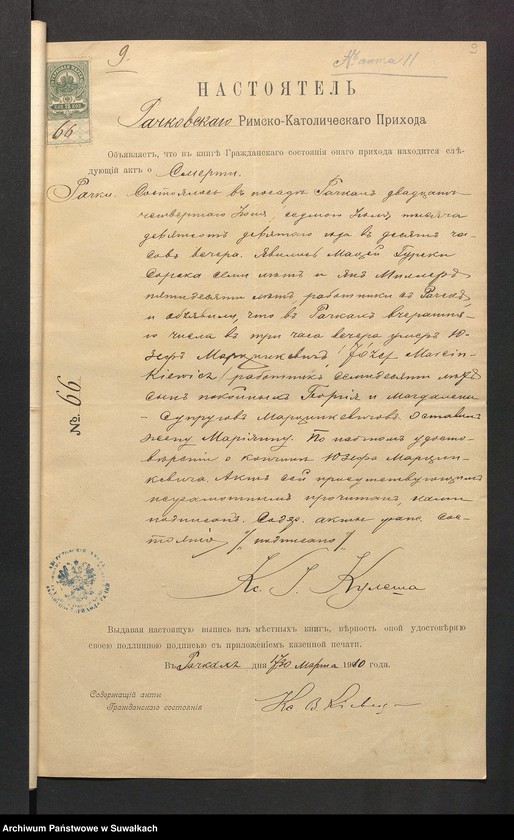 9.
№ акта 11
9
66
НАСТОЯТЕЛЬ
Рачковскаго Римско-Католическаго Прихода
Объявляетъ, что въ книгѣ Гражданскаго состоянія онаго прихода находится слѣ-
дующій актъ о Смерти.
Рачки. Состоялось въ посадѣ Рачкахъ двадцать
четвертаго Іюня, седьмого Іюля, тысяча
девятьсотъ девятаго года въ десять ча-
совъ вечера. Явились Мацей Гурски
сорока семи лѣтъ и Янъ
пятидесяти лѣтъ, работники въ Рачкахъ,
и объявили, что въ Рачкахъ вчерашня-
го числа въ три часа вечера умеръ Ю-
зефъ Марцинкевичъ /Józef Marcin-
kiewicz/ работникъ семидесяти лѣтъ
сынъ покойныхъ и Магдалены
супруговъ Марцинкевичовъ. Оставилъ
жену Маріянну. По настоящемъ удосто-
вѣреніи о кончинѣ Юзефа Марцин-
кевича. Актъ сей присутствующимъ
неграмотнымъ прочитанъ, нами
подписанъ. Содер. акты граж. сос-
тоянія /подписано/
№ 66
Кс. І. Кулеша
Выдавая настоящую выпись изъ мѣстныхъ книгъ, вѣрность оной удостовѣряю
своею подлинною подписью съ приложеніемъ казенной печати.
Въ Рачкахъ дня 17/30 Марта 1910 года.
Содержащій акты
Гражданскаго состоянія
Кс. В.
Archiwum Państwowe w Suwałkach